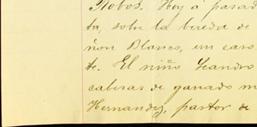 Robos. Hoy á pasad
ta, sobre la vereda de
ñon Blanco, un caso
te. El niño Leandro
cabezas de ganado m
Hernandez, pastor de